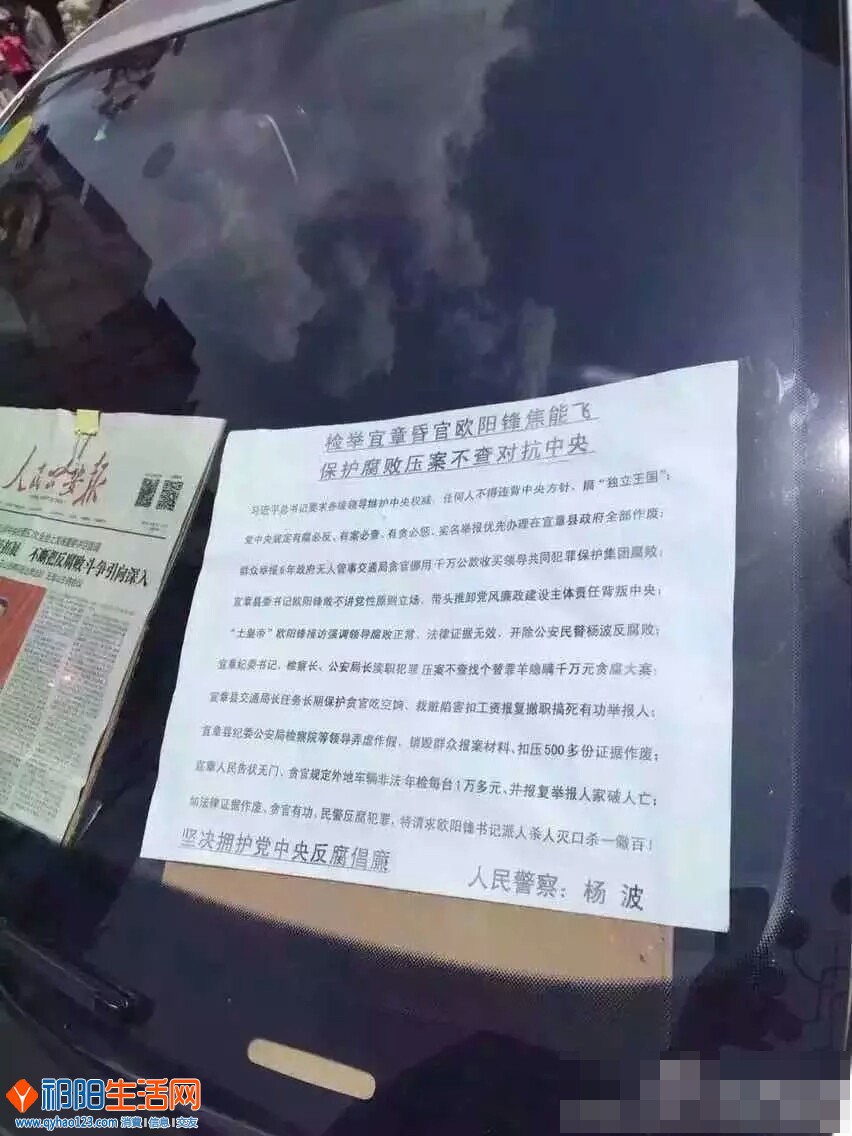 人民公安报
不断把反腐败斗争引向深入
检举宜章昏官欧阳锋焦能飞
保护腐败压案不查对抗中央
习近平总书记要求各级领导维护中央权威、任何人不得违背中央方针、搞“独立王国”；
党中央规定有腐必反、有案必查、有贪必惩、实名举报优先办理在宜章县政府全部作废；
群众举报6年政府无人管事交通局贪官挪用千万公款收买领导共同犯罪保护集团腐败；
宜章县委书记欧阳锋敢不讲党性原则立场、带头推卸党风廉政建设主体责任背叛中央；
“土皇帝”欧阳锋接访强调领导腐败正常、法律证据无效、开除公安民警杨波反腐败；
宜章纪委书记、检察长、公安局长渎职犯罪压案不查找个替罪羊隐瞒千万元贪腐大案；
宜章县交通局长任务长期保护贪官吃空饷、栽赃陷害扣工资报复撤职搞死有功举报人；
宜章县纪委公安局检察院等领导弄虚作假、销毁群众报案材料、扣压500多份证据作废；
宜章人民告状无门、贪官规定外地车辆非法年检每台1万多元、并报复举报人家破人亡；
如法律证据作废、贪官有功，民警反腐犯罪，特请求欧阳锋书记派人杀人灭口杀一儆百！
坚决拥护党中央反腐倡廉
人民警察：杨 波
祁阳生活网
www.qyhao123.com 消费|信息|交友